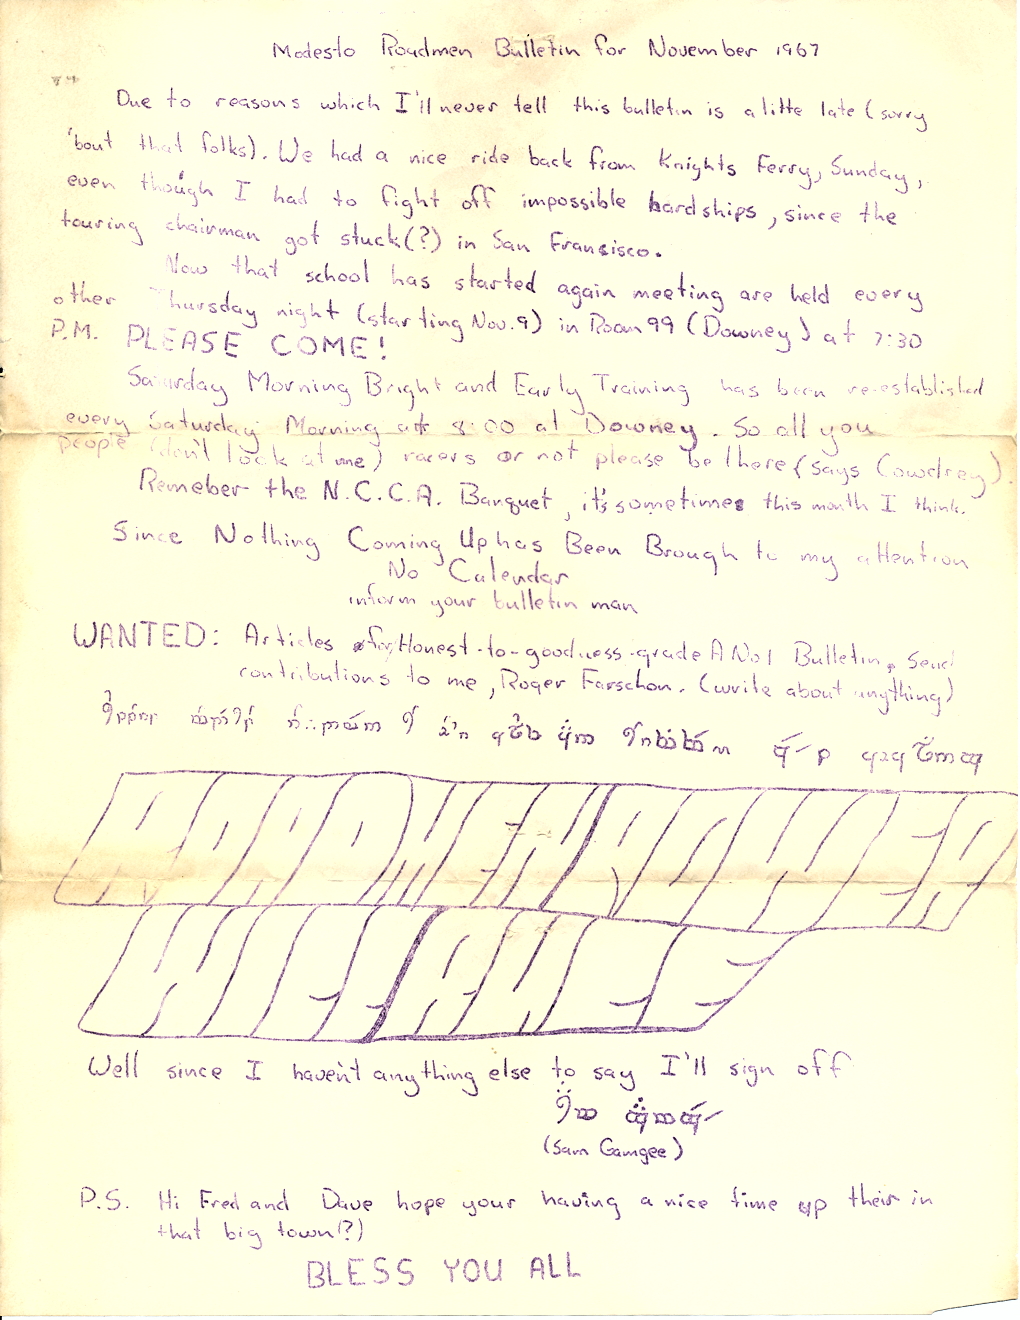 Modesto Roadmen Bulletin for November 1967
Due to reasons which I'll never tell this bulletin is a litte late (sorry
'bout that folks). We had a nice ride back from Knights Ferry, Sunday,
even though I had to fight off impossible hardships, since the
touring chairman got stuck(?) in San Fransisco.
Now that school has started again meeting are held every
other Thursday night (starting Nov. 9) in Room 99 (Downey) at 7:30
P.M. PLEASE COME!
Saturday Morning Bright and Early Training has been re-established
every Saturday Morning at 8:00 at Downey. So all you
people (don't look at me) racers or not please be there (says Cowdrey).
Remeber the N.C.C.A. Banquet, it's sometimes this month I think.
Since Nothing Coming Up has Been Brough to my attention
No Calendar
inform your bulletin man
WANTED: Articles for Honest-to-goodness-grade A No 1 Bulletin, Send
contributions to me, Roger Farschon. (write about anything)
Well since I haven't anything else to say I'll sign off
(Sam Gamgee)
P.S. Hi Fred and Dave hope your having a nice time up their in
that big town(?)
BLESS YOU ALL